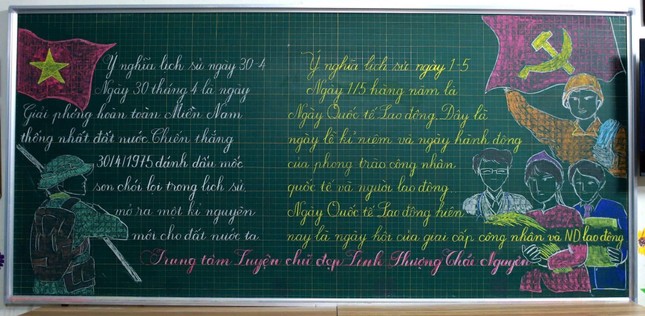 Ý nghĩa lịch sử ngày 30-4
Ngày 30 tháng 4 là ngày
Giải phóng hoàn toàn Miền Nam
thống nhất đất nước. Chiến thắng
30/4/1975 đánh dấu mốc
son chói lọi trong lịch sử,
mở ra một kỉ nguyên
mới cho đất nước ta
Ý nghĩa lịch sử ngày 1-5
Ngày 1/5 hàng năm là
Ngày Quốc tế Lao động. Đây là
ngày lễ kỉ niệm và ngày hành động
của phong trào công nhân
quốc tế và người lao động
Ngày Quốc tế Lao động hiện
nay là ngày hội của giai cấp công nhân và ND lao động
Trung tâm Luyện chữ đẹp Linh Thượng Thái Nguyên